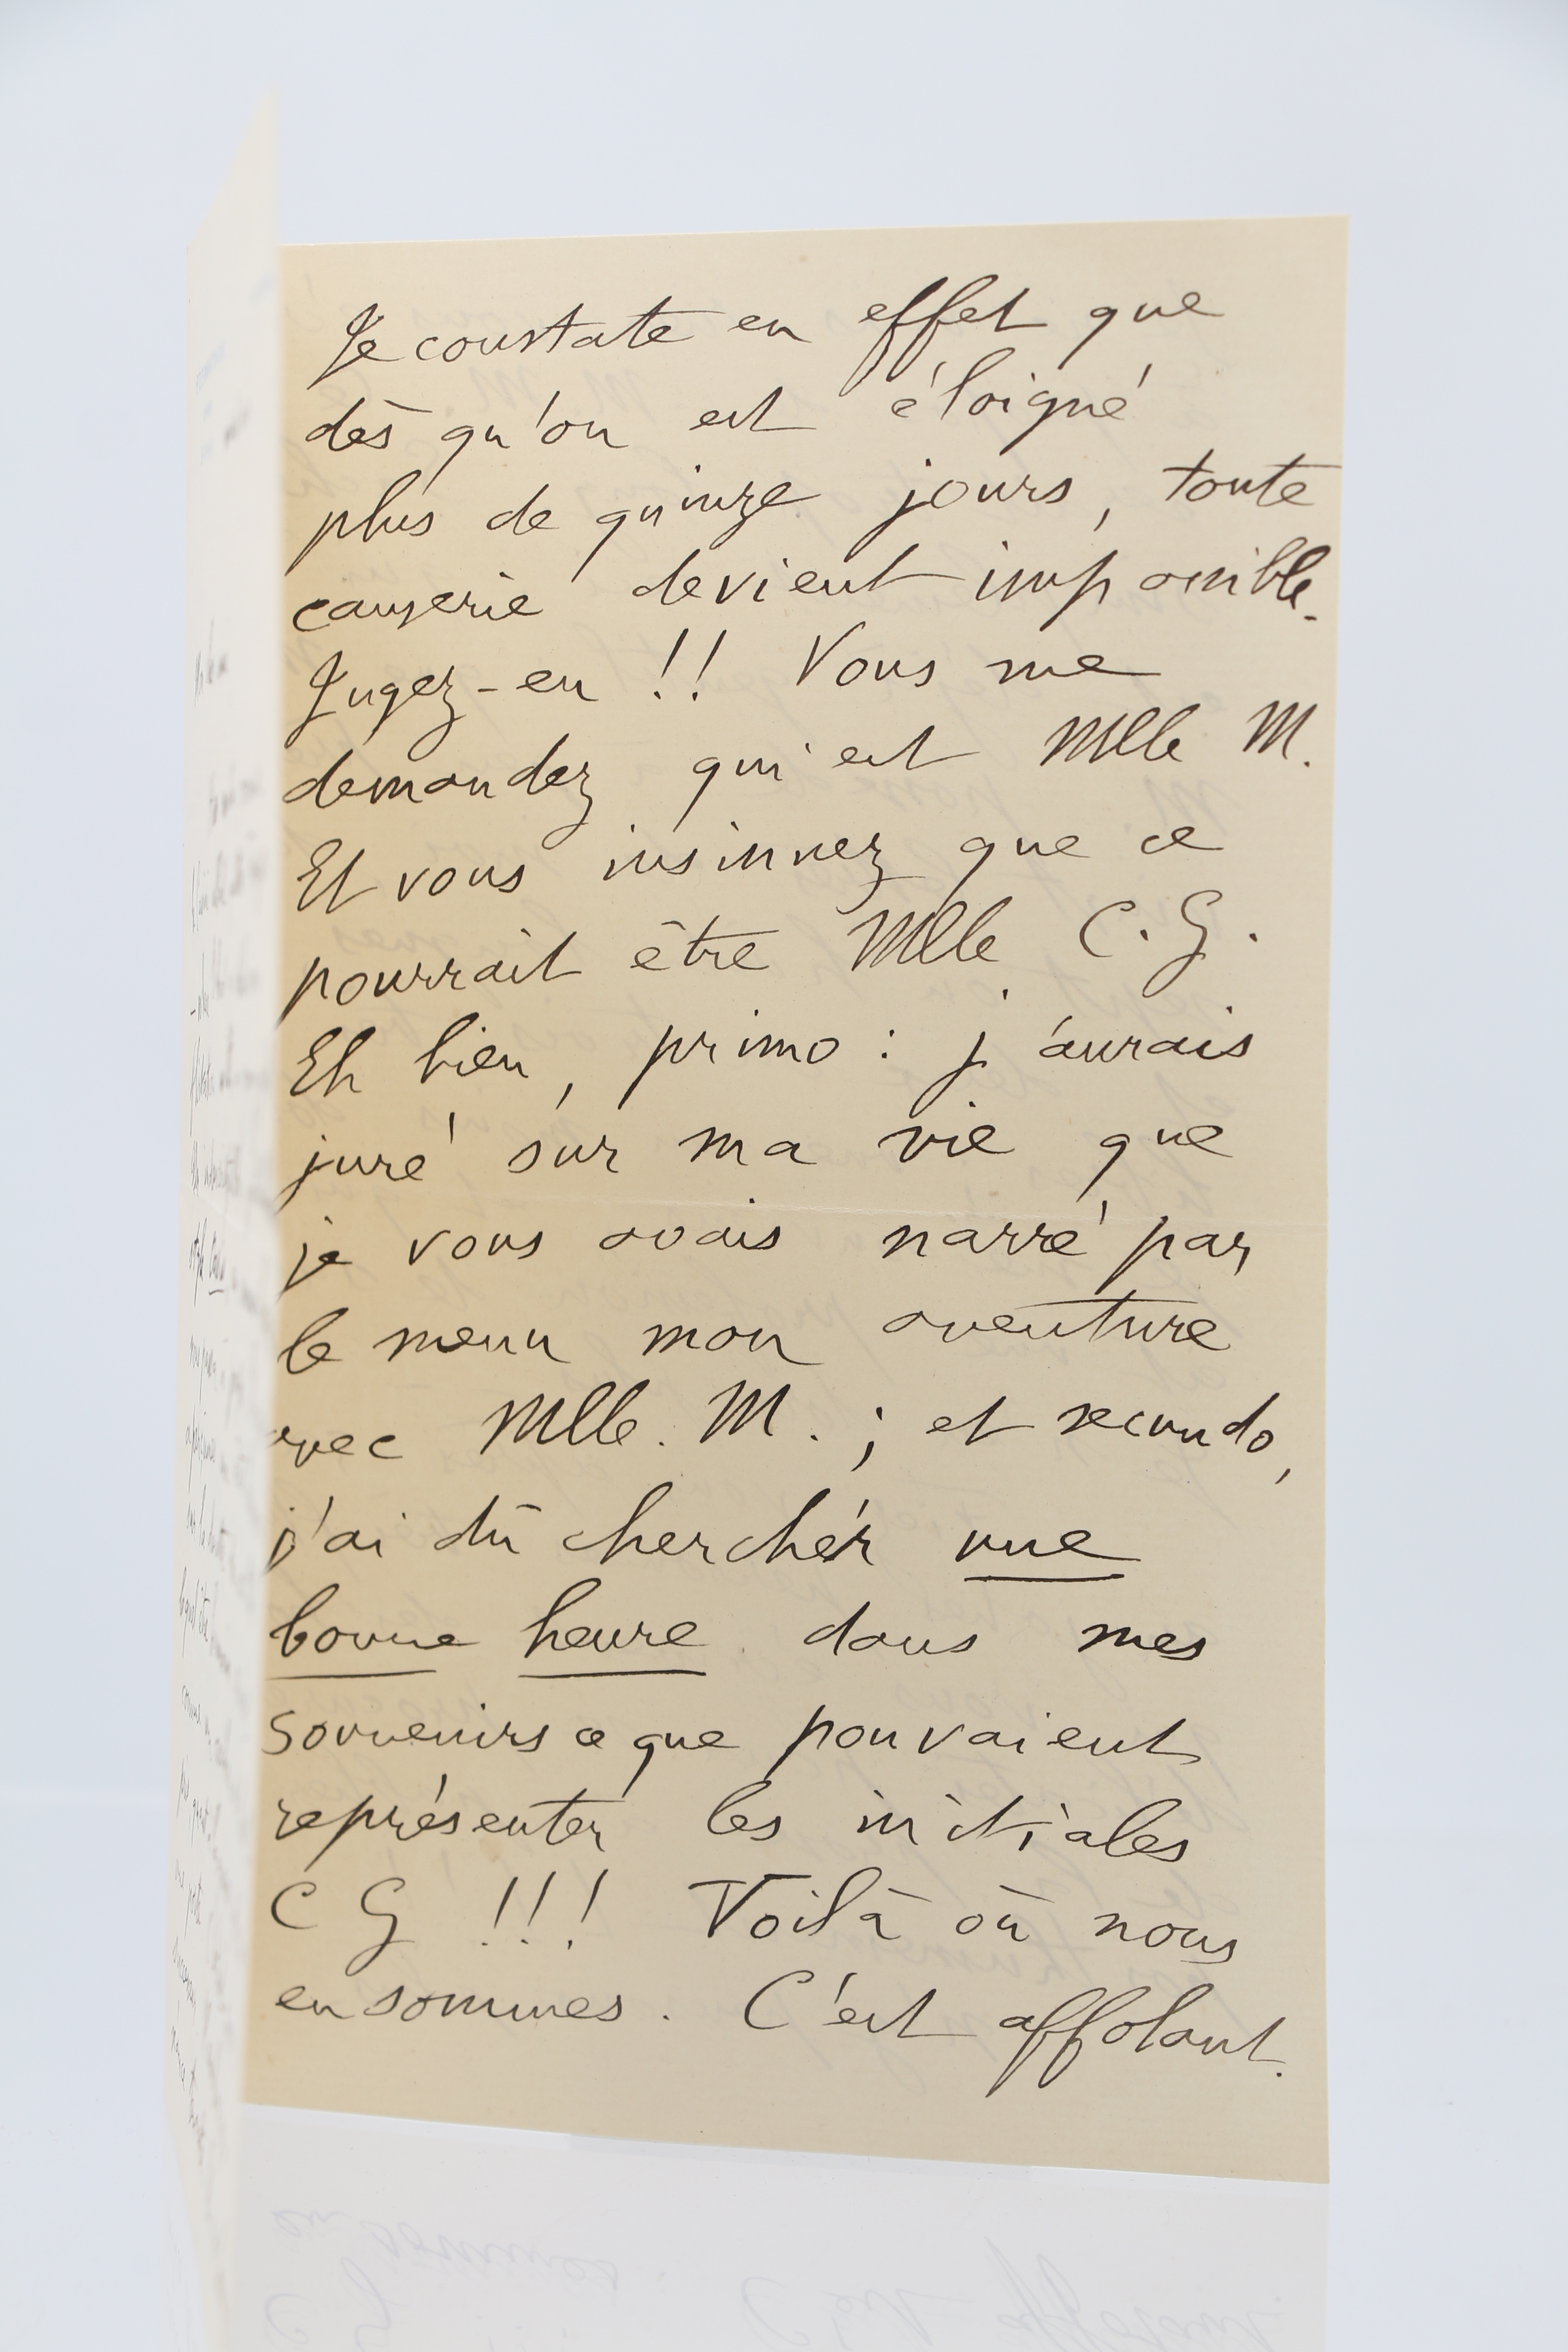 Je constate en effet que
dès qu'on est éloigné
plus de quinze jours, toute
causerie devient impossible.
Jugez-en !! Vous me
demandez qui est Mlle M.
Et vous insinuez que ce
pourrait être Mlle C. G.
Eh bien, primo : j'aurais
juré sur ma vie que
je vous avais narré par
le menu mon aventure
avec Mlle. M. ; et secundo,
j'ai dû cherchér une
bonne heure dans mes
souvenirs ce que pouvaient
représenter les initiales
C G !!! Voilà où nous
en sommes. C'est affolant.